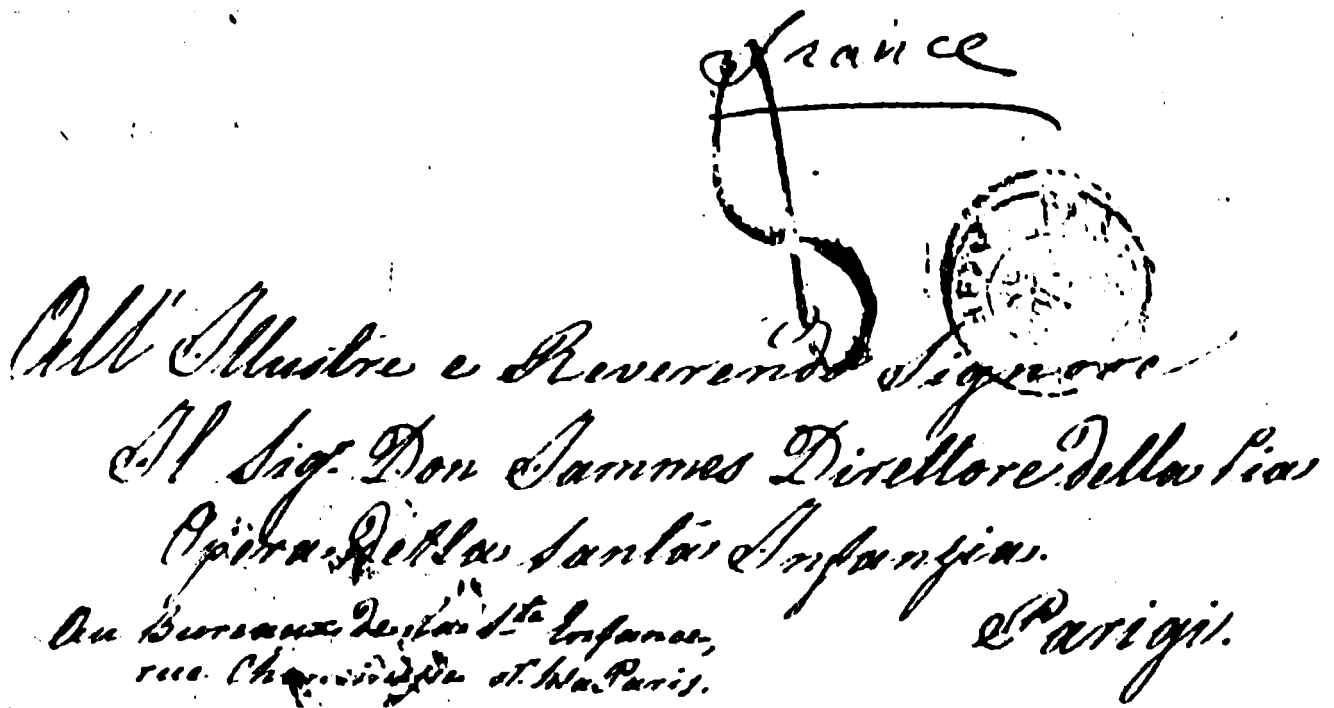 France
All' Illustre e Reverendo Signore
Il Sigr. Don Jammes Direttore della Pia
Opera Della Santa Infanzia.
Parigi.
Au Bureaux de la Ste Enfance,
rue Paris.